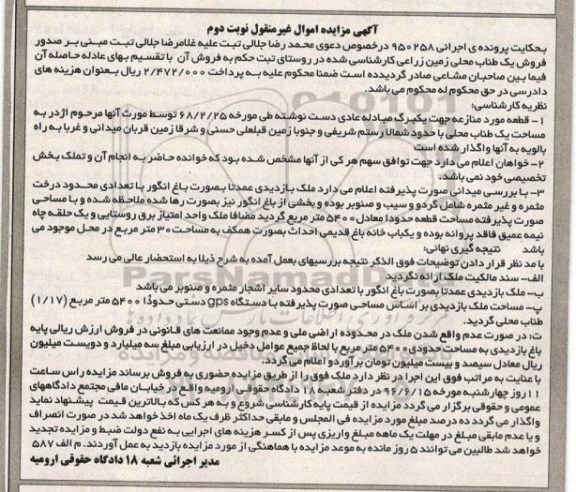 آگهی مزایده اموال غیرمنقول نوبت دوم
بحکایت پرونده ی اجرائی ۹۵۰۲۵۸ درخصوص دعوی محمد رضا جلالی تبت علیه غلامرضا جلالی تبت مبنی بر صدور
فروش یک طناب محلی زمین زراعی کارشناسی شده در روستای تبت حکم به فروش آن با تقسیم بهای عادله حاصله آن
فیما بین صاحبان مشاعی صادر گردیده است ضمنا محکوم علیه به پرداخت ۲/۴۷۲/۰۰۰ ریال بعنوان هزینه های
دادرسی در حق محکوم له محکوم می باشد.
نظریه کارشناسی:
۱- قطعه مورد منازعه جهت یکبرگ مبادله عادی دست نوشته طی مورخه ۶۸/۲/۲۵ توسط مورث آنها مرحوم اژدر به
مساحت یک طناب محلی با حدود شمالا رستم شریفی و جنوبا زمین قبلعلی حسنی و شرقا زمین قربان میدانی و غربا به راه
پالویه به آنها واگذار شده است
۲- خواهان اعلام می دارد جهت توافق سهم هر کی از آنها مشخص شده بود که خوانده حاضر به انجام آن و تملک بخش
تخصیصی خود نمی باشد.
۳- با بررسی میدانی صورت پذیرفته اعلام می دارد ملک بازدیدی عمدتا بصورت باغ انگور با تعدادی محدود درخت
مثمره و غیر مثمره شامل گردو و سیب و صنوبر بوده و بخشی از باغ انگور نیز بصورت رها شده ملاحظه شده و با مساحی
صورت پذیرفته مساحت قطعه حدودا معادل ۵۴۰۰ متر مربع گردید مضافا ملک واجد امتیاز برق روستایی و یک حلقه چاه
نیمه عمیق فاقد پروانه بوده و یکباب خانه باغ قدیمی احداث بصورت همکف به مساحت ۳۰ متر مربع در محل موجود می
باشد نتیجه گیری نهائی:
با مد نظر قرار دادن توضیحات فوق الذکر نتیجه بررسیهای بعمل آمده به شرح ذیلا به استحضار عالی می رسد
الف- سند مالکیت ملک ارائه نگردید
ب- ملک بازدیدی عمدتا بصورت باغ انگور با تعدادی محدود سایر اشجار مثمره و صنوبر می باشد
پ- مساحت ملک بازدیدی بر اساس مساحی صورت پذیرفته با دستگاه gps دستی حدودا ۵۴۰۰ متر مربع (۱/۱۷)
طناب محلی گردید.
ت: در صورت عدم واقع شدن ملک در محدوده اراضی ملی و عدم وجود ممانعت های قانونی در فروش ارزش ریالی پایه
باغ بازدیدی به مساحت حدودی ۵۴۰۰ متر مربع با لحاظ جمیع عوامل دخیل در ارزیابی مبلغ سه میلیارد و دویست میلیون
ریال معادل سیصد و بیست میلیون تومان برآورد و اعلام می گردد.
با عنایت به مراتب فوق این اجرا در نظر دارد ملک فوق را از طریق مزایده حضوری به فروش برساند مزایده راس ساعت
۱۱ روز چهارشنبه مورخه ۹۶/۹/۱۵ در دفتر شعبه ۱۸ دادگاه حقوقی ارومیه واقع در خیابان مافی مجتمع دادگاههای
عمومی و حقوقی برگزار می گردد مزایده از قیمت پایه کارشناسی شروع و به هر کس که بالاترین قیمت پیشنهاد نماید
واگذار می گردد ده درصد مبلغ مورد مزایده فی المجلس و مابقی حداکثر ظرف یک ماه اخذ خواهد شد در صورت انصراف
و یا عدم مابقی مبلغ در مهلت یک ماهه مبلغ واریزی پس از کسر هزینه های اجرایی به نفع دولت ضبط و مزایده تجدید
خواهد شد طالبین می توانند ۵ روز مانده به موعد مزایده با هماهنگی از مورد مزایده بازدید به عمل آوردند. م الف ۵۸۷
مدیر اجرائی شعبه ۱۸ دادگاه حقوقی ارومیه